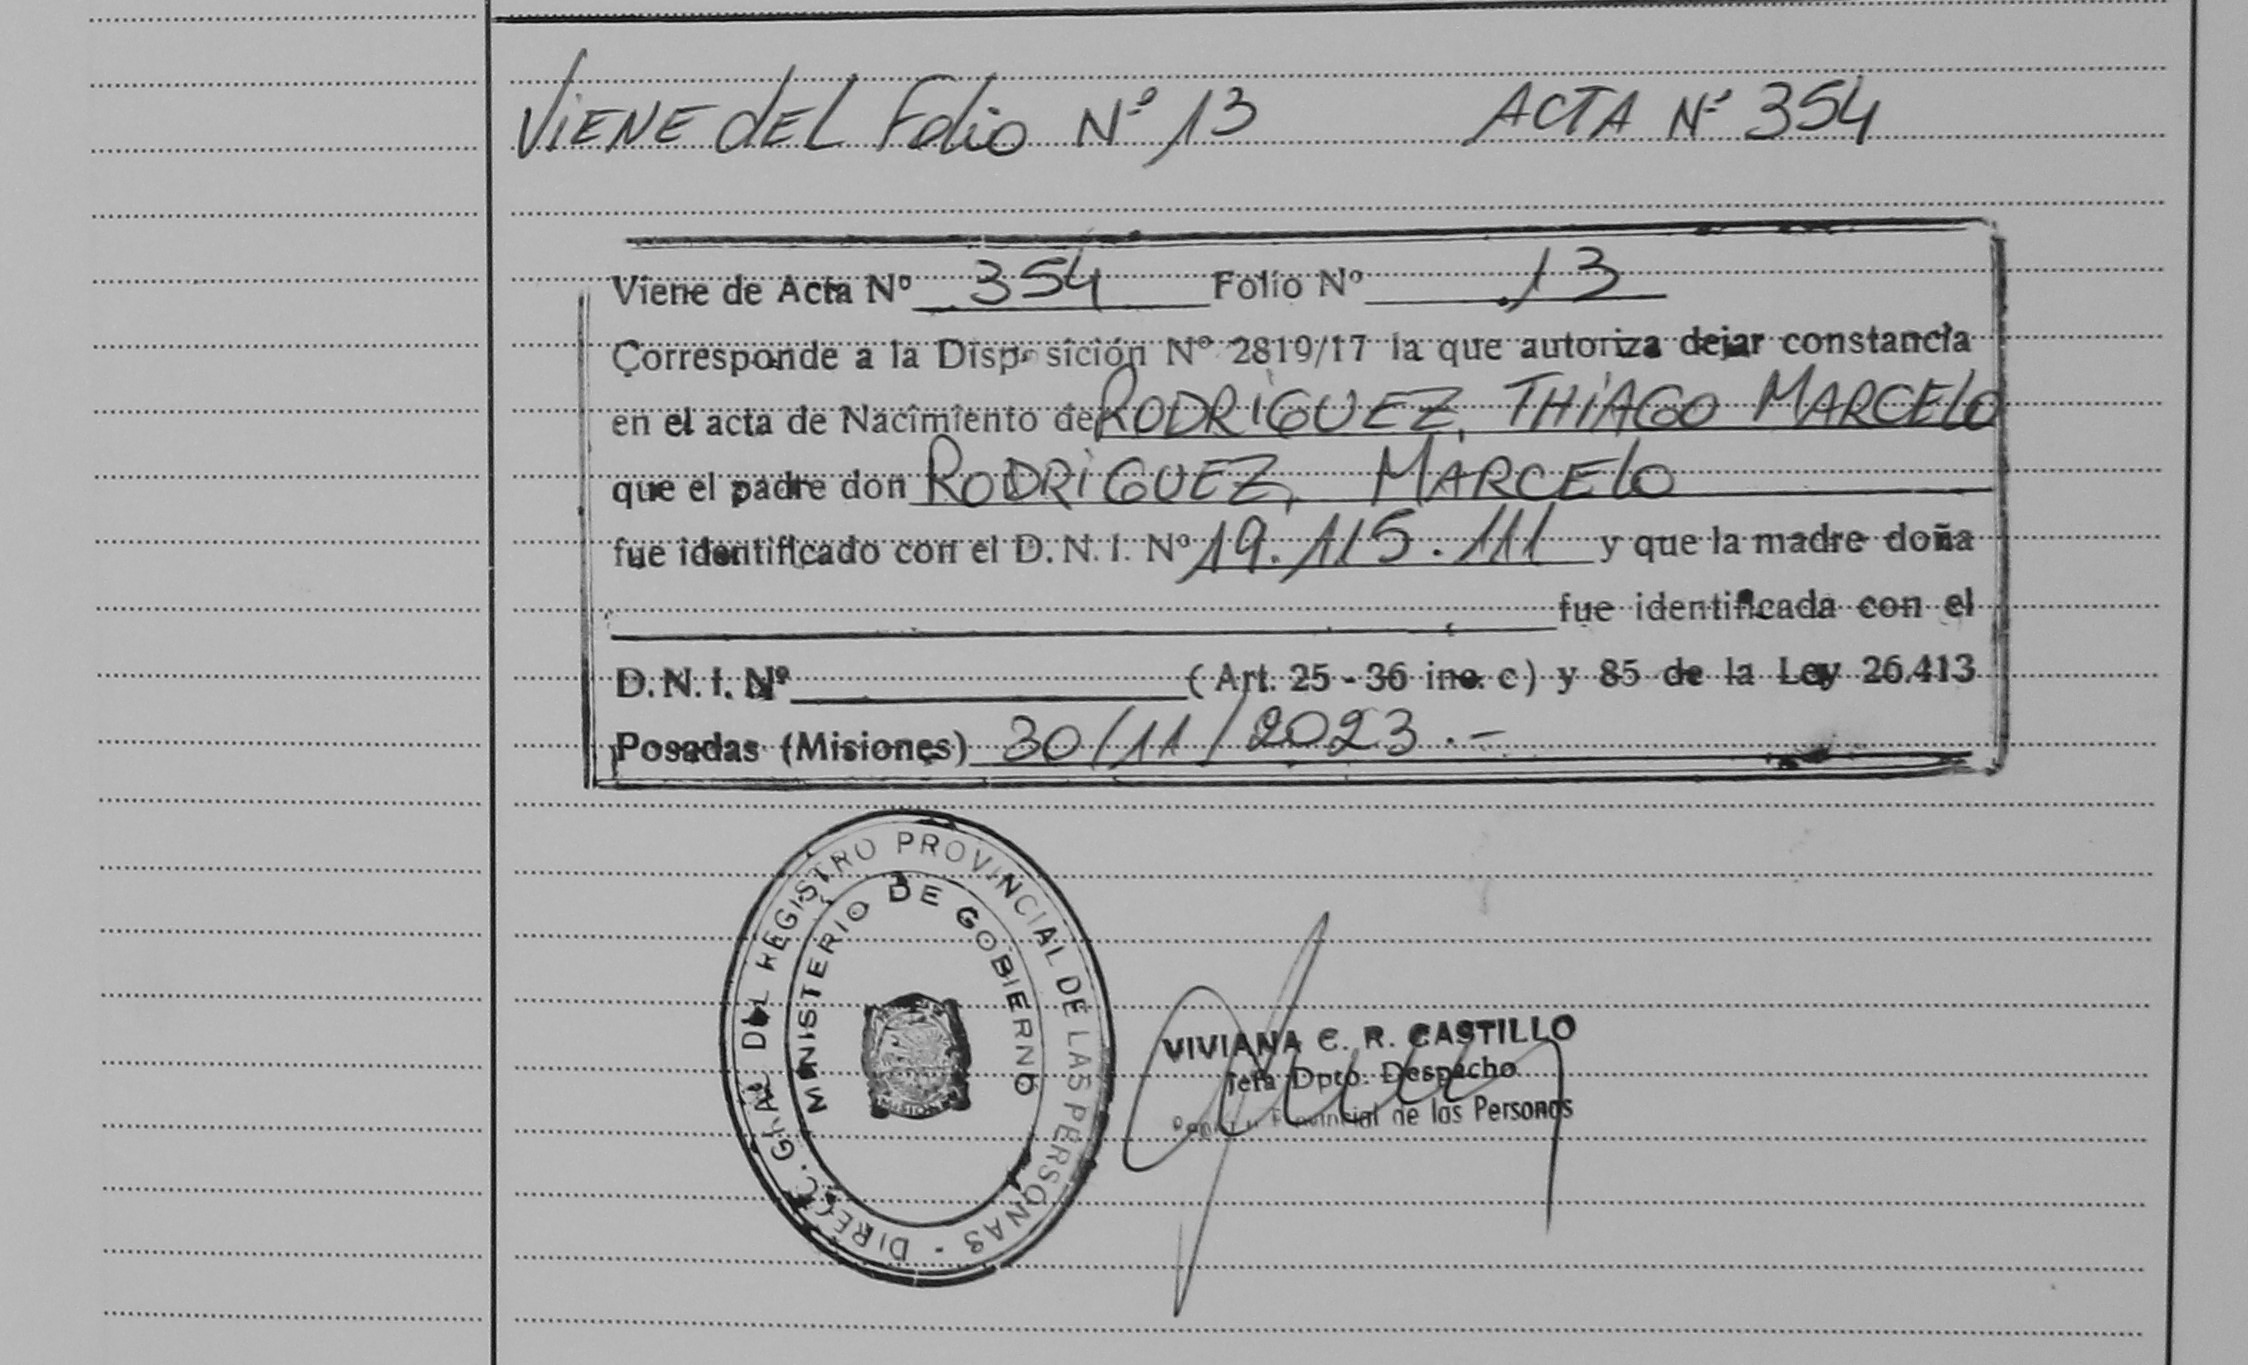 Viene del Folio Nº 13 ACTA Nº 354
Viene de Acta Nº 354 Folio Nº 13
Corresponde a la Disposición Nº 2819/17 la que autoriza dejar constancia
en el acta de Nacimiento de RODRIGUEZ, THIAGO MARCELO
que el padre don RODRIGUEZ, MARCELO
fue identificado con el D. N. I. Nº 19.115.111 y que la madre doña
fue identificada con el
D. N. I. Nº (Art. 25 - 36 inc. c) y 85 de la Ley 26.413
Posadas (Misiones) 30/11/2023.-
DIREC. GRAL DEL REGISTRO PROVINCIAL DE LAS PERSONAS -
MINISTERIO DE GOBIERNO
VIVIANA C. R. CASTILLO
Jefa Dpto. Despacho
Provincial de las Personas